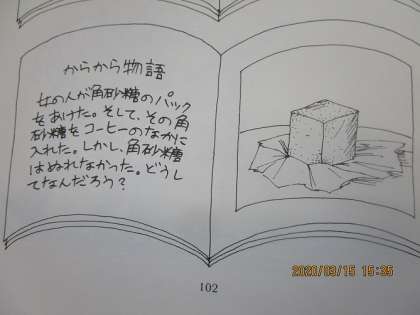 からから物語
女の人が角砂糖のパック
をあけた。そして、その角
砂糖をコーヒーのなかに
入れた。しかし、角砂糖
はぬれなかった。どうし
てなんだろう？
102
2020/03/15 15:35